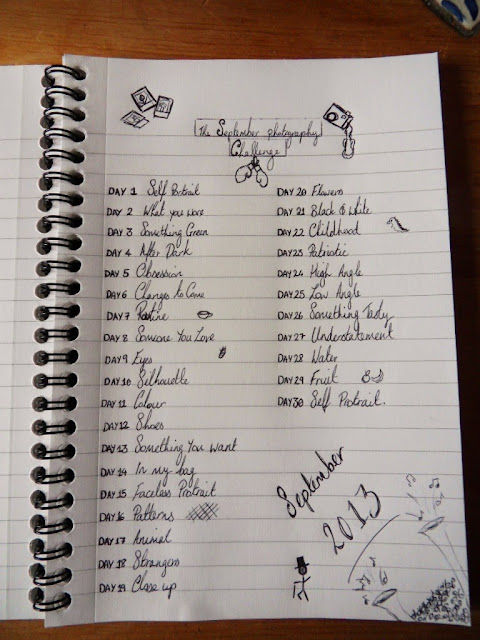 The September photography
Challenge
DAY 1 Self Portrait
DAY 2 What you wore
DAY 3 Something Green
DAY 4 After Dark
DAY 5 Obsession
DAY 6 Changes to Come
DAY 7 Routine
DAY 8 Someone You Love
DAY 9 Eyes
DAY 10 Silhouette
DAY 11 Colour
DAY 12 Shoes
DAY 13 Something You Want
DAY 14 In my bag
DAY 15 Faceless Protrait
DAY 16 Patterns
DAY 17 Animal
DAY 18 Strangers
DAY 19 Close up
DAY 20 Flowers
DAY 21 Black & White
DAY 22 Childhood
DAY 23 Patriotic
DAY 24 High Angle
DAY 25 Low Angle
DAY 26 Something Tasty
DAY 27 Understatement
DAY 28 Water
DAY 29 Fruit
DAY 30 Self Protrait.
September
2013